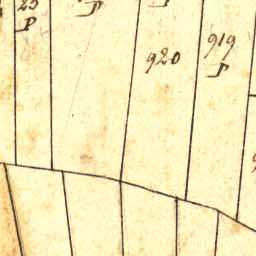 23
P
P
920
919
P